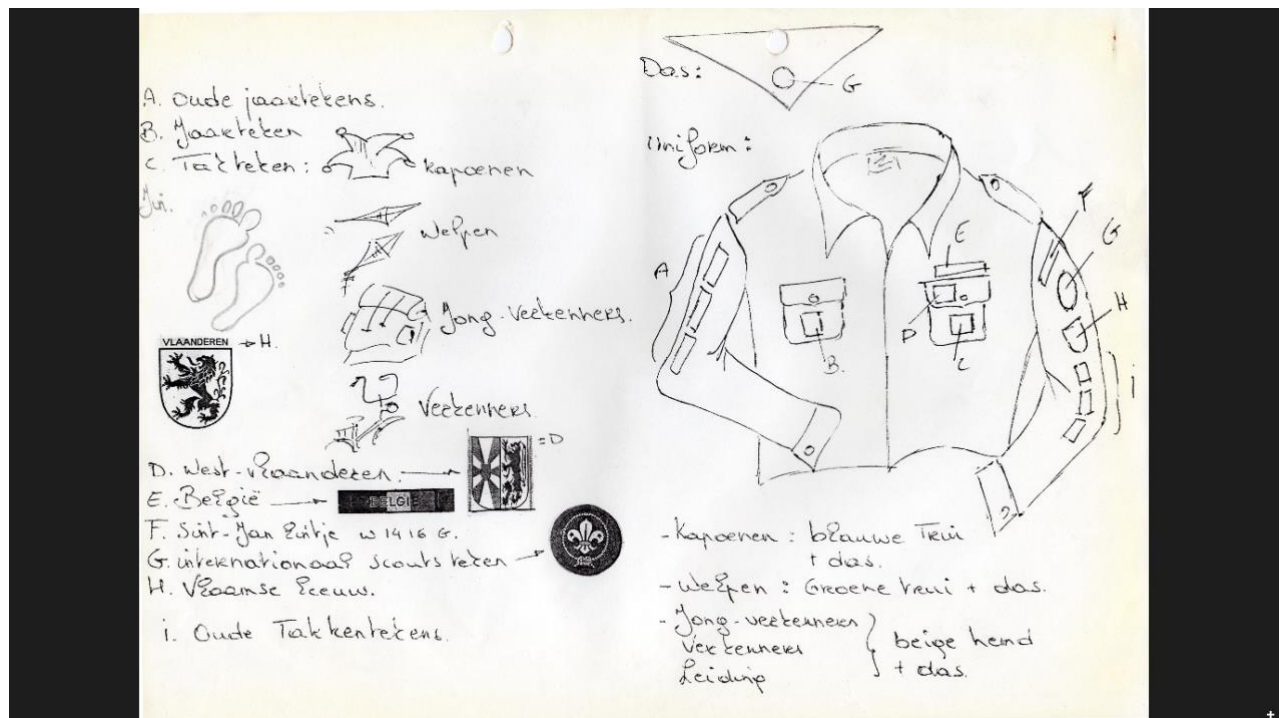 A. Oude jaartekens.
B. Jaarteken
C. Takteken:
kapoenen
Welpen
Jong-verkenners.
Verkenners
VLAANDEREN
H.
= D
D. West-Vlaanderen.
E. België
BELGIE
F. Sint-Jan Lintje W 1416 G.
G. internationaal scouts teken
H. Vlaamse Leeuw.
i. Oude Takkentekens.
Das:
G
Uniform:
A
B.
C
D
E
F
G
H
i
- Kapoenen : blauwe Trui
+ das.
- Welpen : Groene trui + das.
- Jong-verkenners
Verkenners
Leiding
beige hemd
+ das.